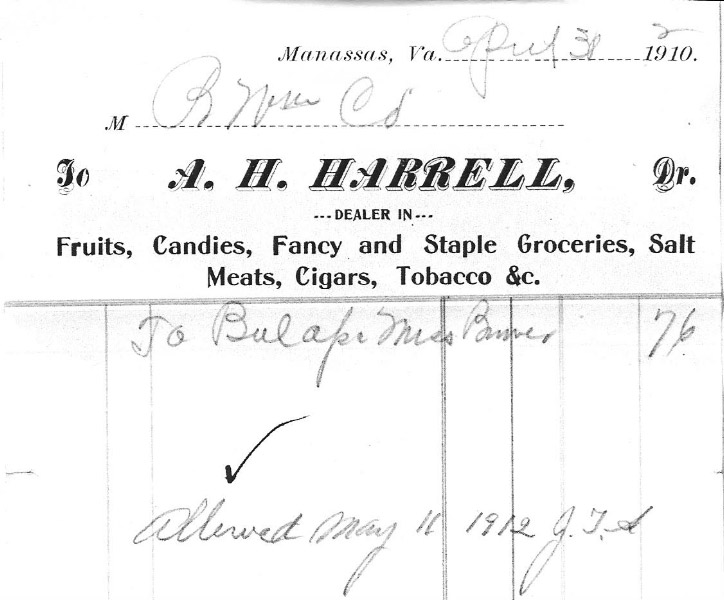 Manassas, Va. April 30 1912.
M P Wm Co
To A. H. HARRELL, Dr.
---DEALER IN---
Fruits, Candies, Fancy and Staple Groceries, Salt
Meats, Cigars, Tobacco &c.
To Bal Miss 76
Allowed May 11 1912 J.T.S